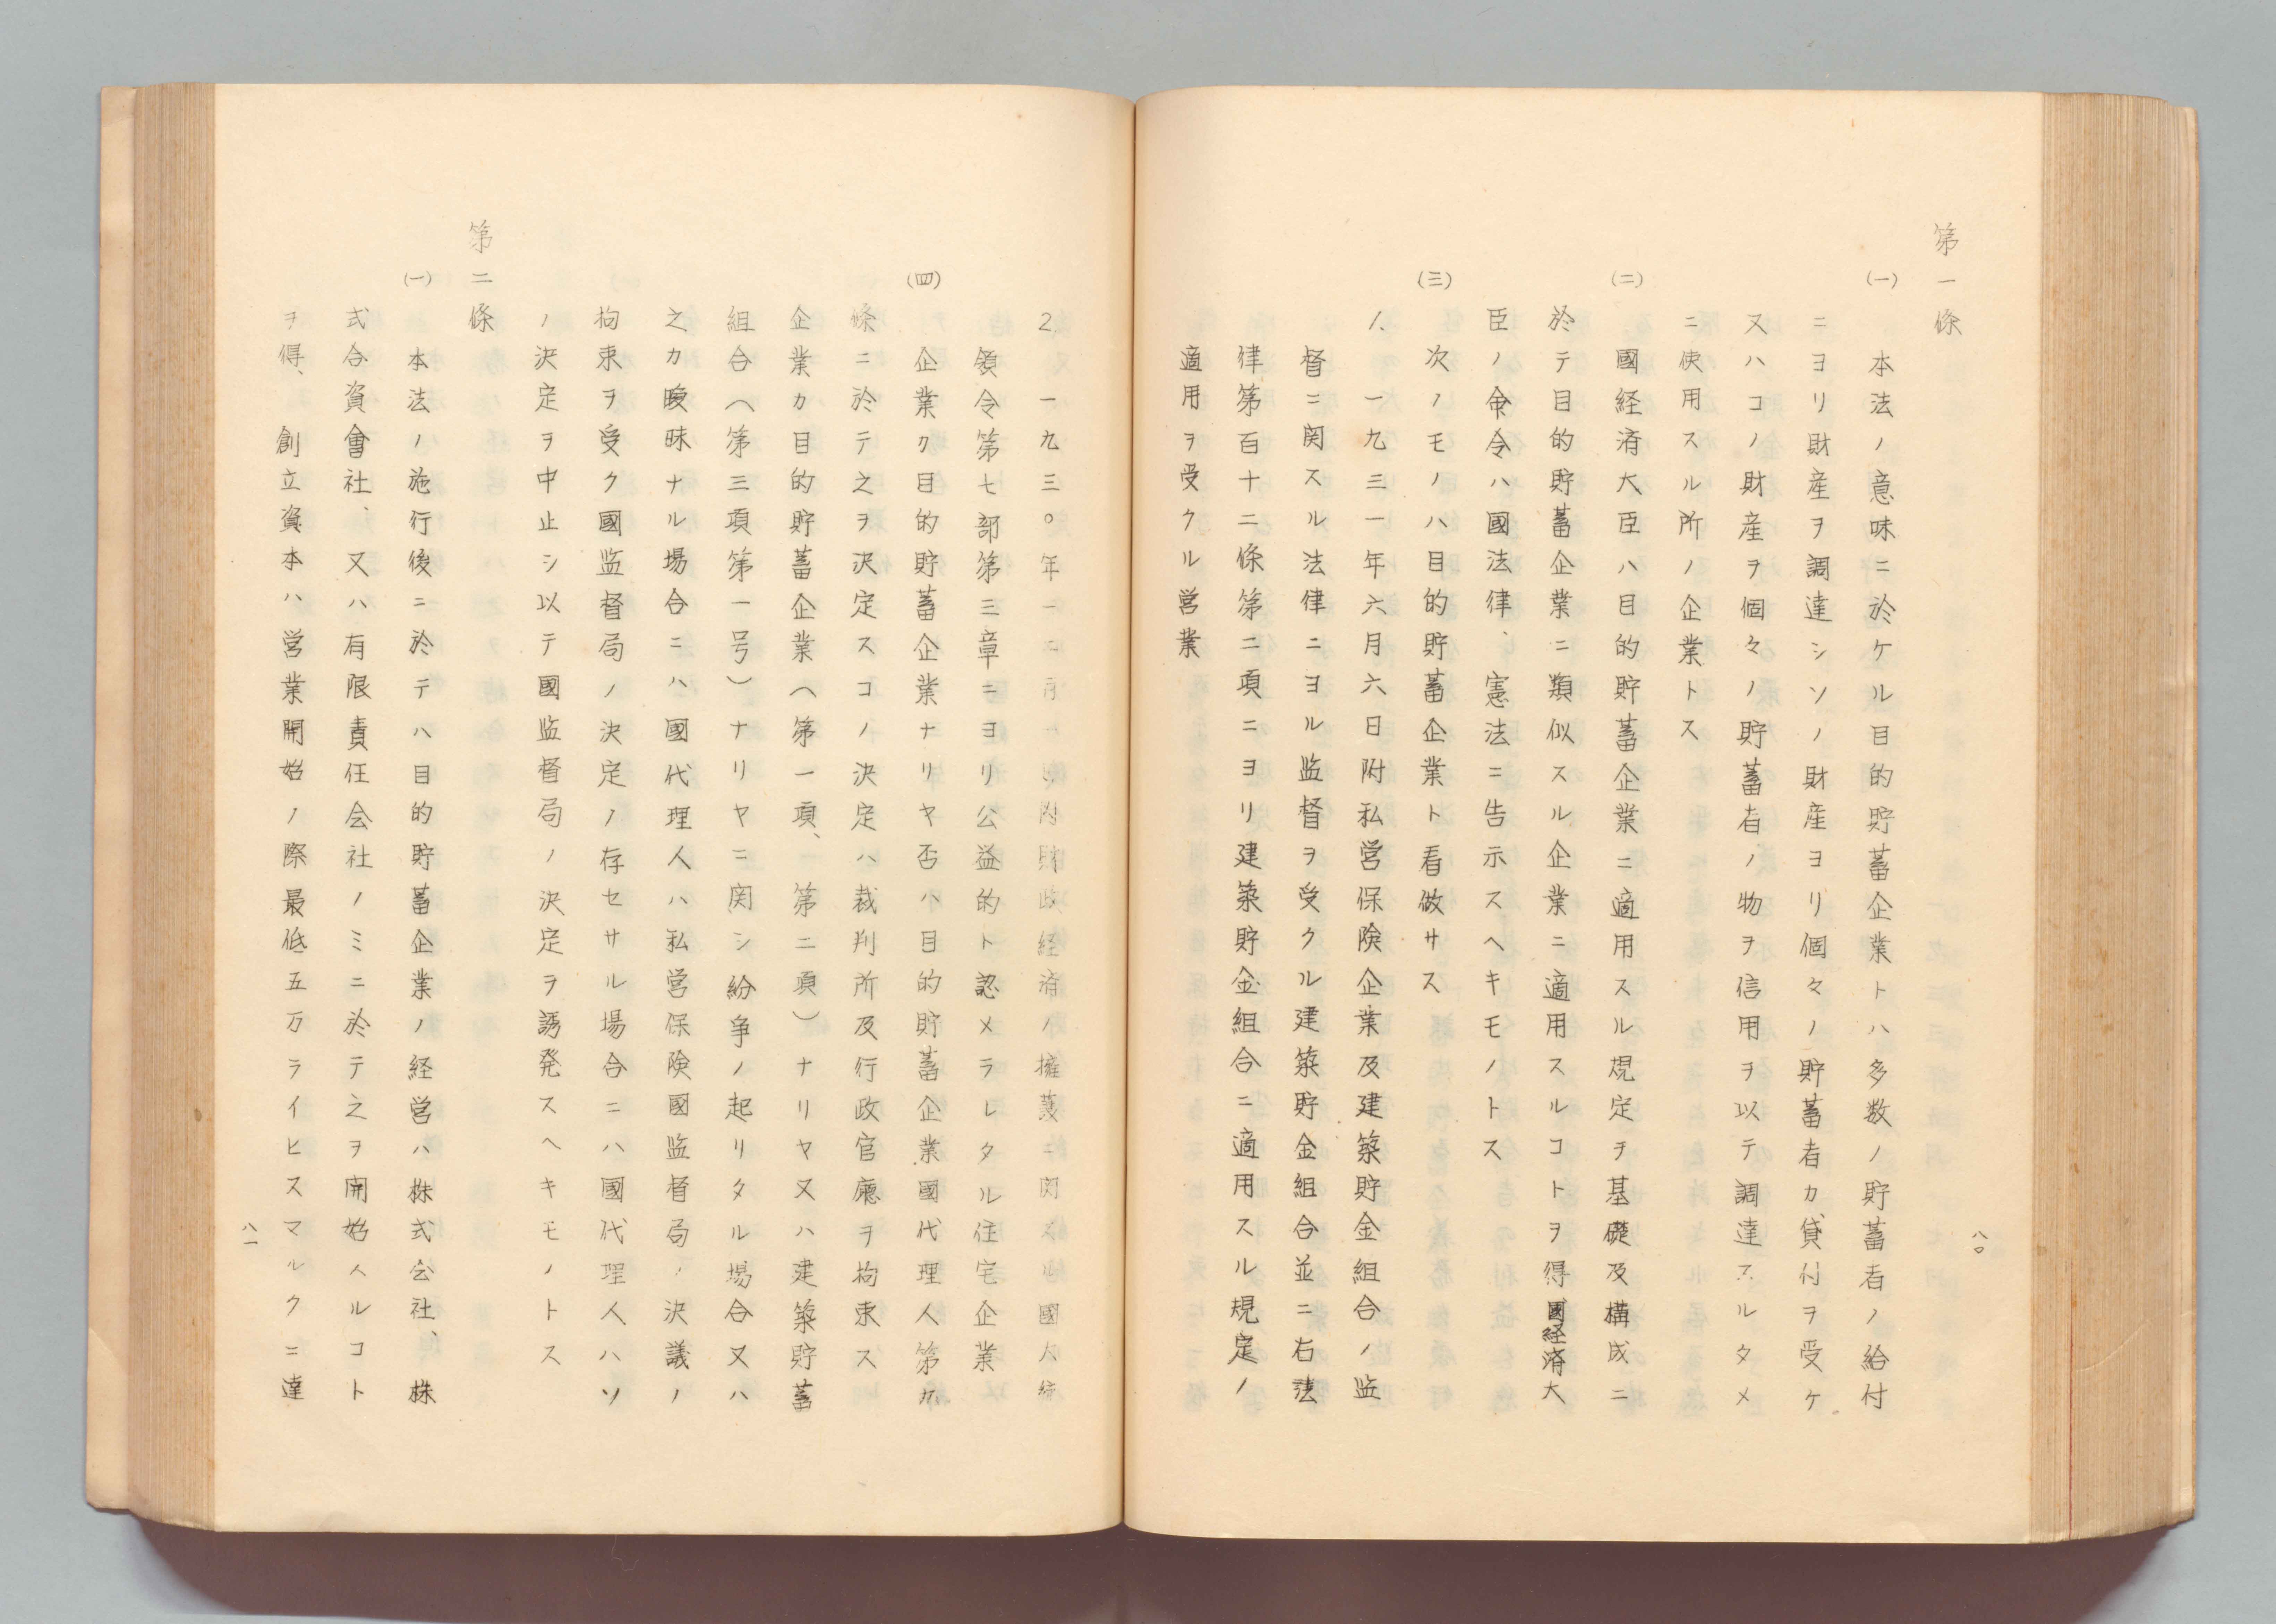 第一條
(一)
本法ノ意味ニ於ケル目的貯蓄企業トハ多数ノ貯蓄者ノ給付
ニヨリ財産ヲ調達シソノ財産ヨリ個々ノ貯蓄者カ貸付ヲ受ケ
又ハコノ財産ヲ個々ノ貯蓄者ノ物ヲ信用ヲ以テ調達スルタメ
ニ使用スル所ノ企業トス
(二)
國経済大臣ハ目的貯蓄企業ニ適用スル規定ヲ基礎及構成ニ
於テ目的貯蓄企業ニ類似スル企業ニ適用スルコトヲ得國経済大
臣ノ命令ハ國法律、憲法ニ告示スヘキモノトス
(三)
次ノモノハ目的貯蓄企業ト看做サス
1. 一九三一年六月六日附私営保険企業及建築貯金組合ノ監
督ニ関スル法律ニヨル監督ヲ受クル建築貯金組合並ニ右法
律第百十二條第二項ニヨリ建築貯金組合ニ適用スル規定ノ
適用ヲ受クル営業
八〇
2. 一九三〇年一二月一日附財政経済ノ擁護ニ関スル國大統
領令第七部第三章ニヨリ公益的ト認メラレタル住宅企業
(四)
企業カ目的貯蓄企業ナリヤ否ハ目的貯蓄企業國代理人第九
條ニ於テ之ヲ決定スコノ決定ハ裁判所及行政官廳ヲ拘束ス
企業カ目的貯蓄企業（第一項、第二項）ナリヤ又ハ建築貯蓄
組合（第三項第一号）ナリヤニ関シ紛争ノ起リタル場合又ハ
之カ曖昧ナル場合ニハ國代理人ハ私営保険國監督局ノ決議ノ
拘束ヲ受ク國監督局ノ決定ノ存セサル場合ニハ國代理人ハソ
ノ決定ヲ中止シ以テ國監督局ノ決定ヲ誘発スヘキモノトス
第二條
(一)
本法ノ施行後ニ於テハ目的貯蓄企業ノ経営ハ株式会社、株
式合資會社、又ハ有限責任会社ノミニ於テ之ヲ開始スルコト
ヲ得、創立資本ハ営業開始ノ際最低五万ライヒスマルクニ達
八一